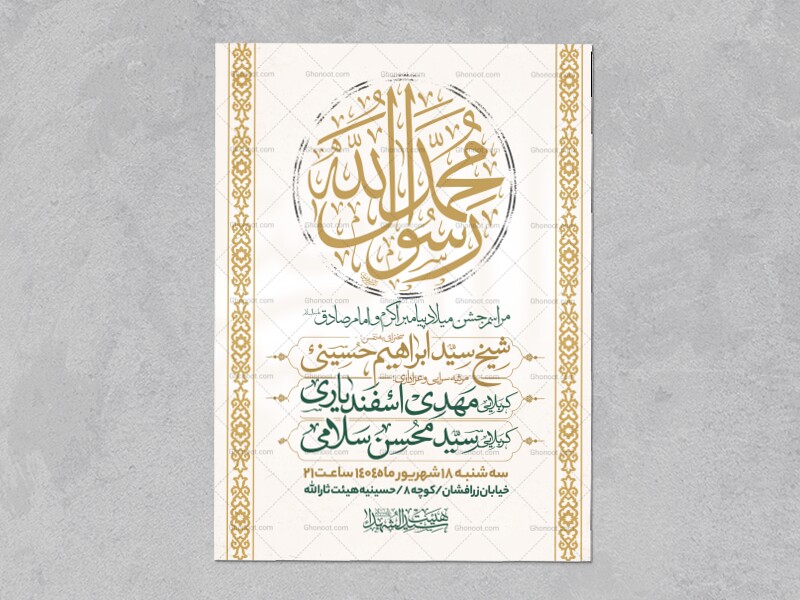 محمد رسول الله
مراسم جشن میلاد پیامبر اکرم و امام صادق
سخنرانی به نفس
شیخ سید ابراهیم حسینی
کربلایی مهدی اسفندیاری
کربلایی سید محسن سلامی
سه شنبه ۱۸ شهریور ماه ۱۴۰۴ ساعت ۲۱
خیابان زرافشان/کوچه ۸/ حسینیه هیئت ثارالله
هیئت سیدالشهدا
Ghonoot.com